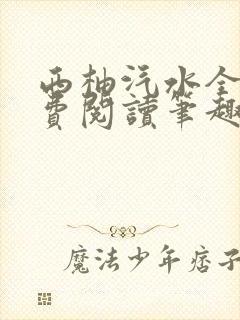 西柚汽水全
費閱讀筆趣
魔法少年痞子